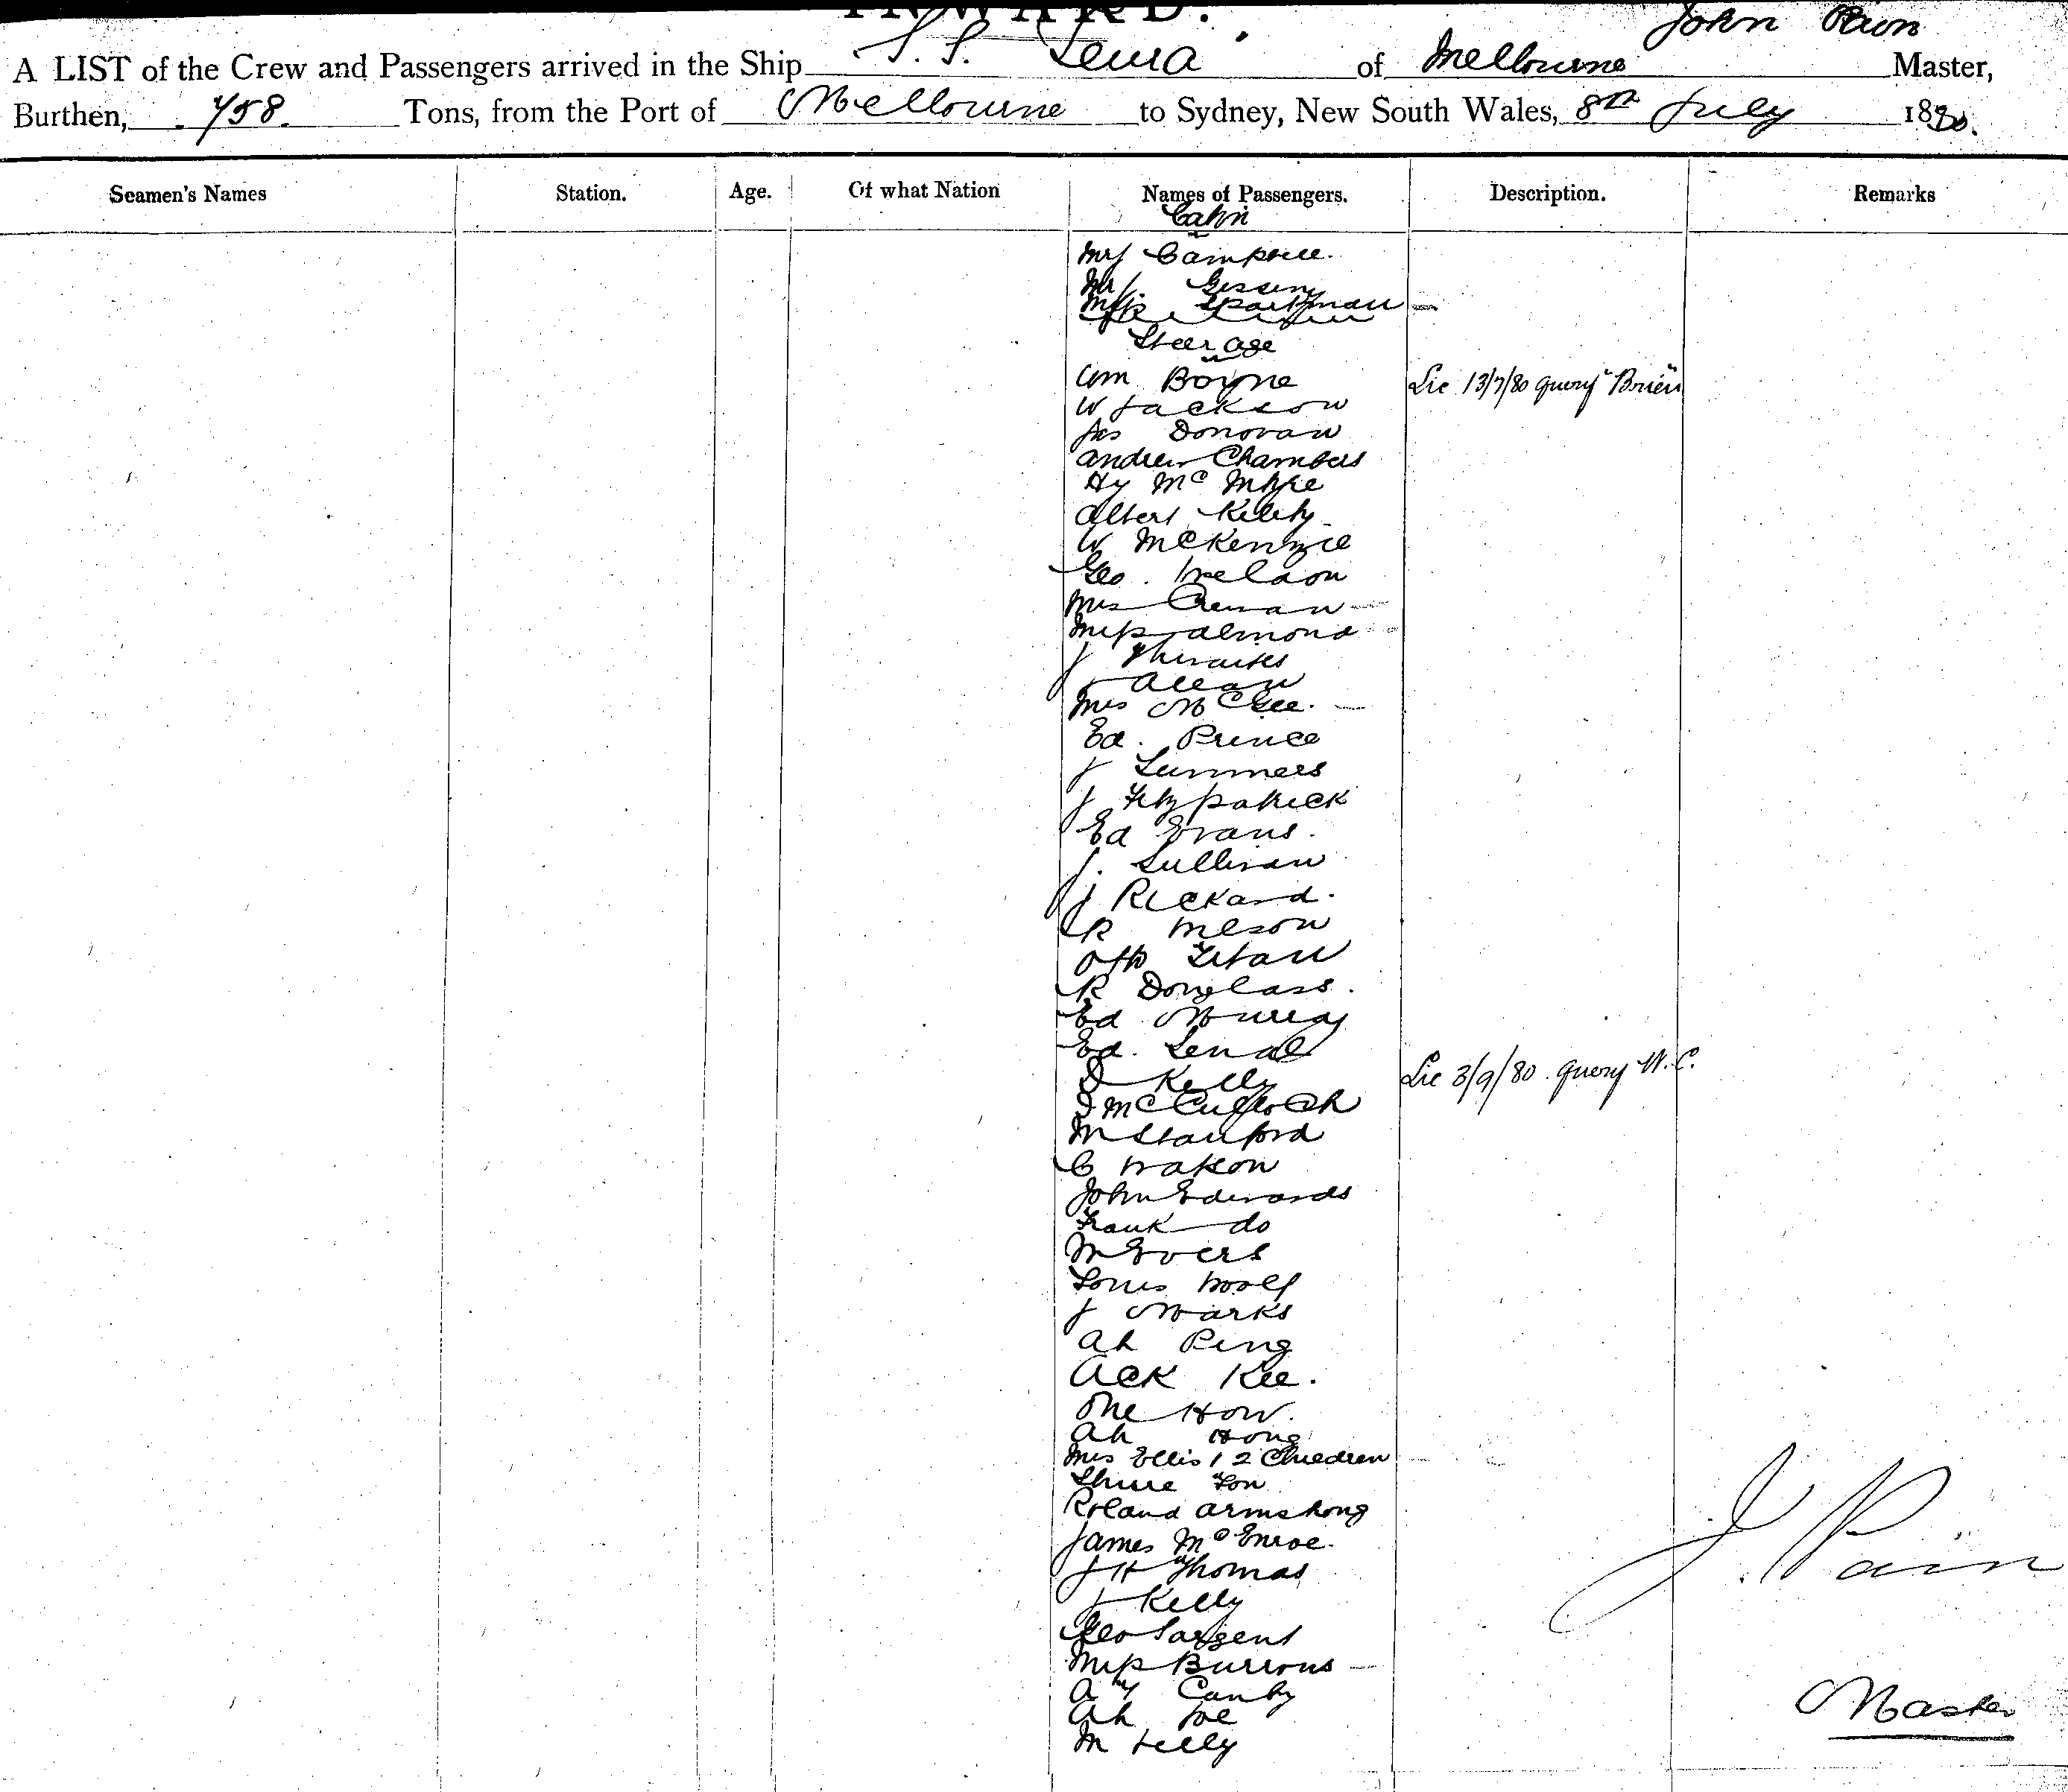 INWARD.
John Pain
A LIST of the Crew and Passengers arrived in the Ship S. S. of Melbourne Master,
Burthen, 458 Tons, from the Port of Melbourne to Sydney, New South Wales, 8th July 1880.
Seamen's Names Station. Age. Of what Nation Names of Passengers. Description. Remarks
Cabin
Campbell.
Steerage
Wm Boyne Lic 13/7/80 query "Brien"
W Jackson
Jas Donovan
Andrew Chambers
Hy
Albert
W McKenzie
Geo.
Mrs
Miss Almond
J Thwaites
J Allan
Mrs McGee.
Ed. Prince
J Summers
J Fitzpatrick
Ed Evans.
J. Sullivan
J Rickard.
R
Otto
R Douglass.
Ed Murray
Ed.
D Kelly Lic 3/9/80 query W. C.
McCulloch
M Stanford
C Watson
John Edwards
Frank do
M Evers
Louis Woolf
J Marks
Ah Ping
Ack Kee.
One How.
Ah Hong
Mrs Ellis 2 Children
Roland Armstrong
James McEnroe.
J H Thomas
J Kelly
Geo Sargent
J. Pain
Miss Burrows
A
Master
Ah
M